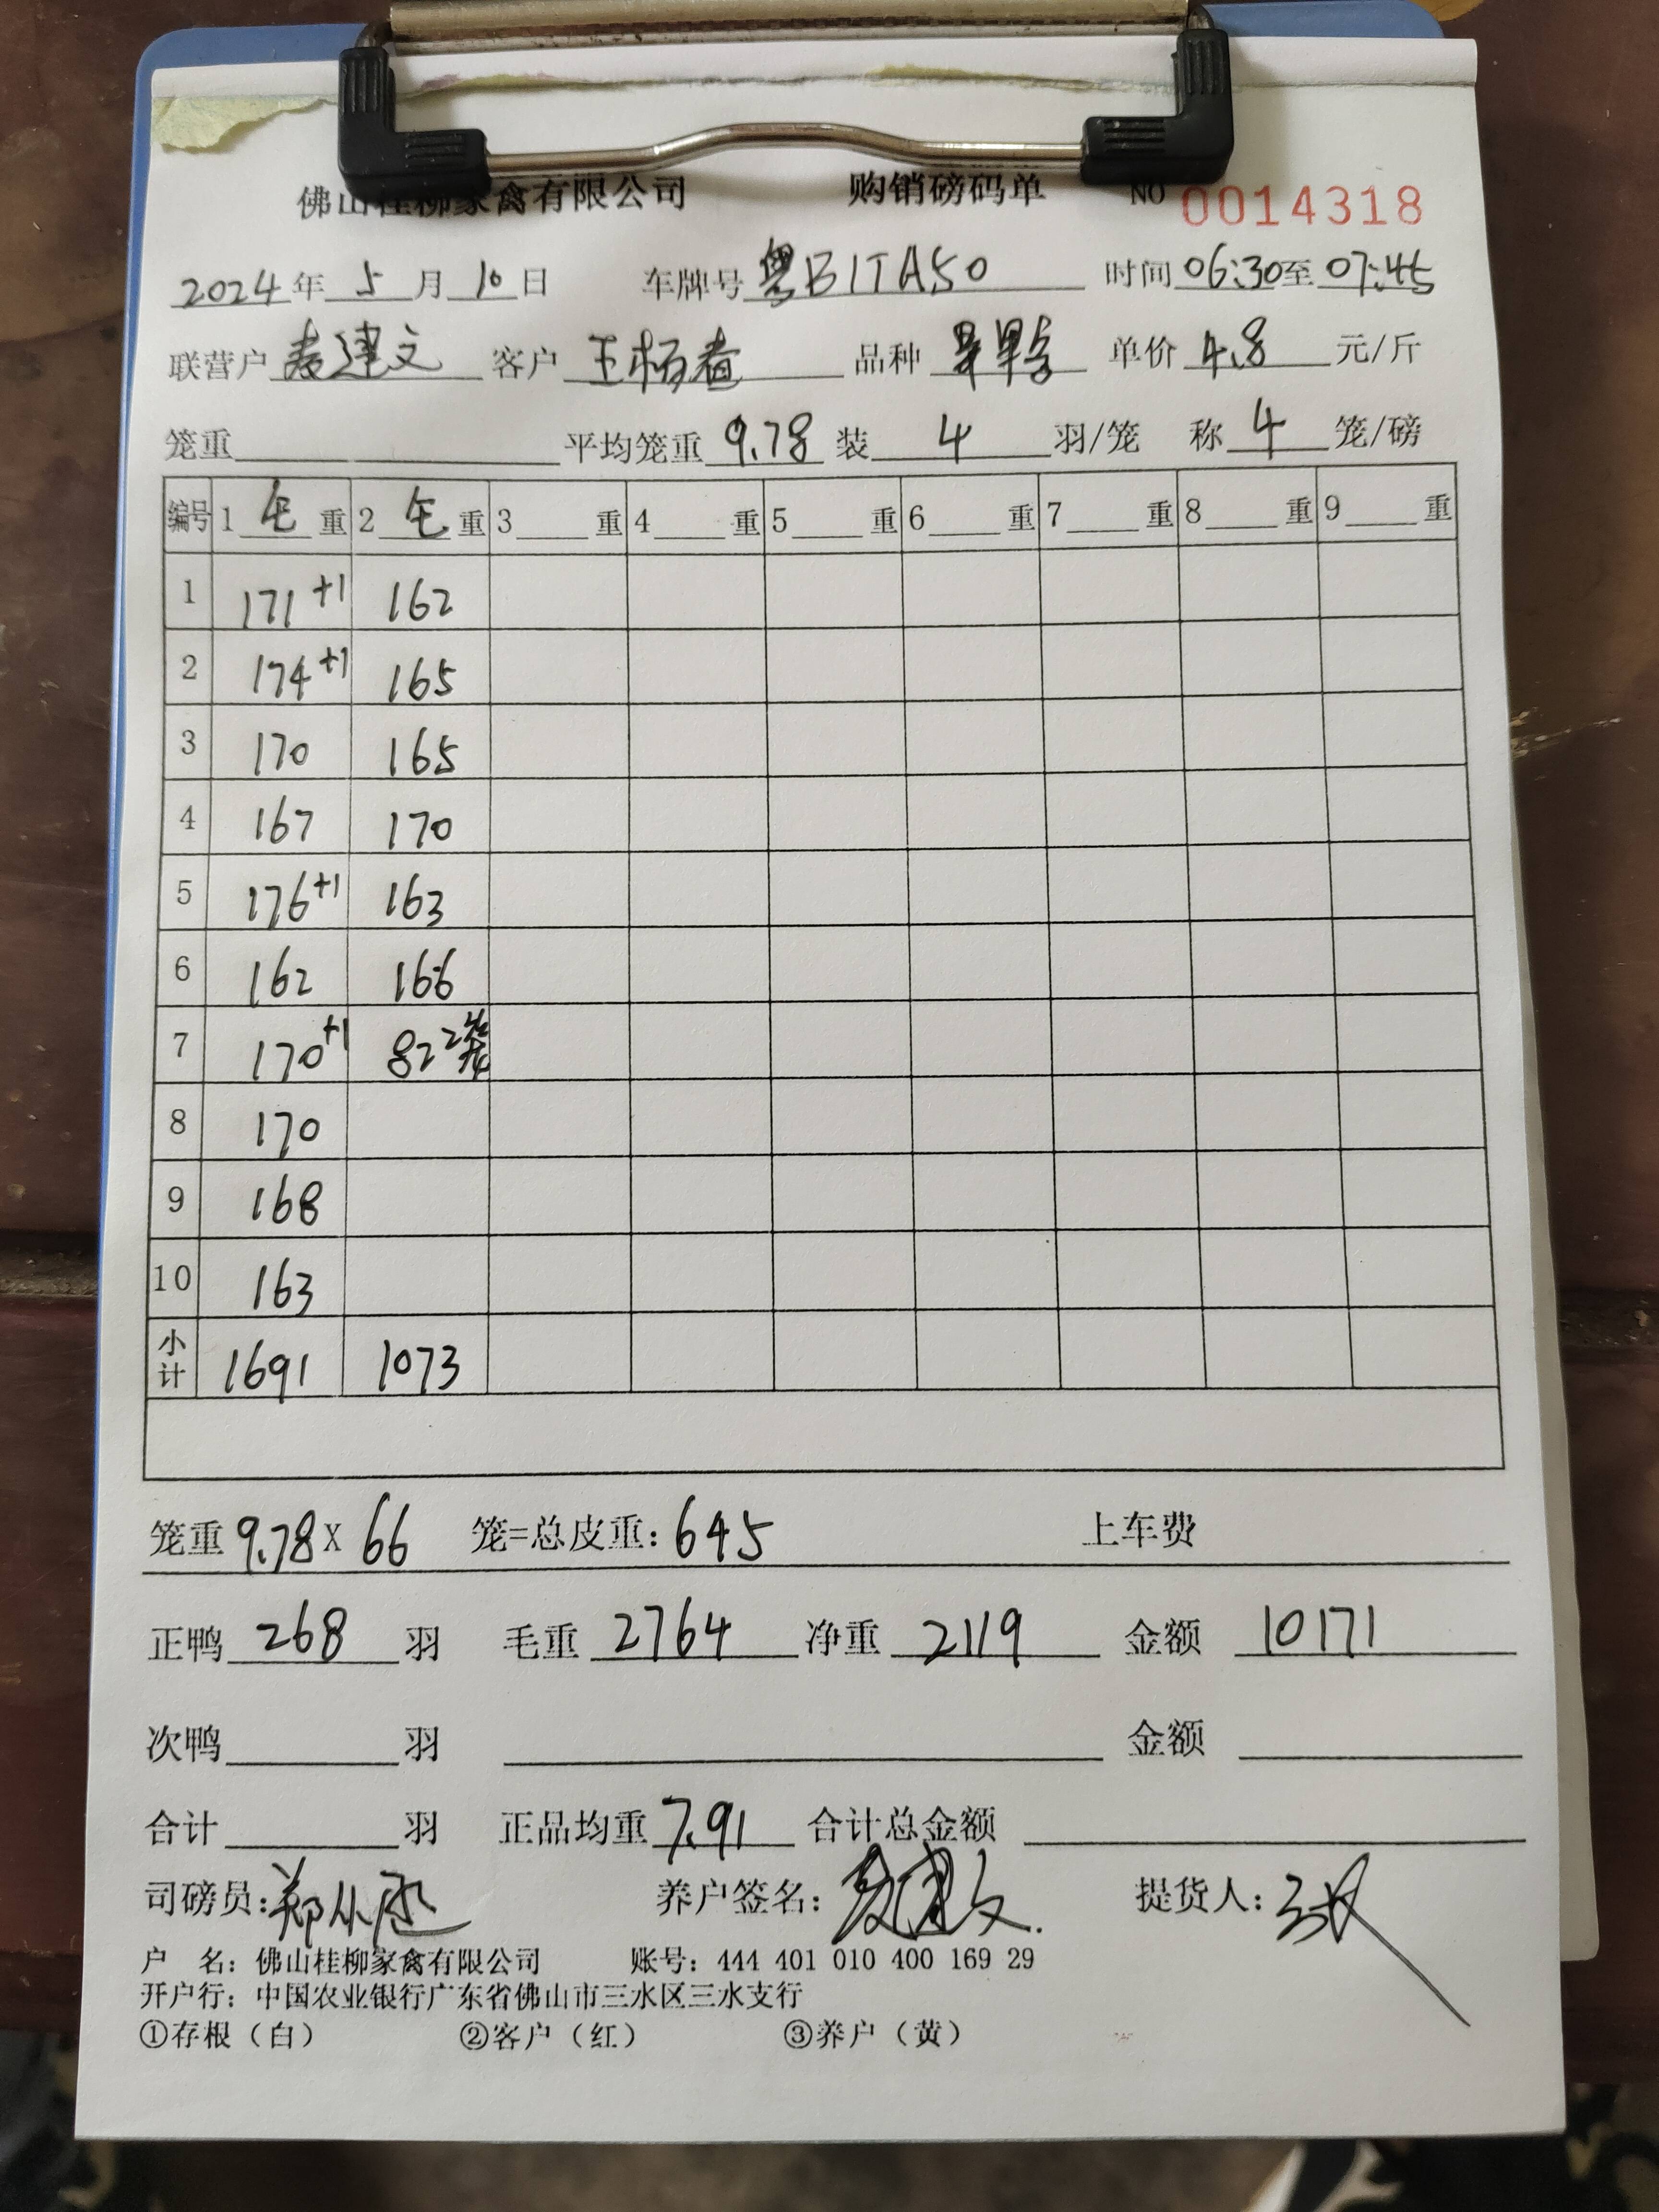 佛山桂柳家禽有限公司 购销磅码单 NO 0014318
2024年 5月 10日 车牌号 粤B1TA50 时间 06:30至 07:45
联营户 麦建文 客户 王柏 品种 单价 4.8 元/斤
笼重 平均笼重 9.78 装 4 羽/笼 称 4 笼/磅
编号 1 毛 重 2 毛 重 3 重 4 重 5 重 6 重 7 重 8 重 9 重
1 171+1 162
2 174+1 165
3 170 165
4 167 170
5 176+1 163
6 162 166
7 170+1 82 2笼
8 170
9 168
10 163
小计 1691 1073
笼重 9.78 X 66 笼=总皮重: 645 上车费
正鸭 268 羽 毛重 2764 净重 2119 金额 10171
次鸭 羽 金额
合计 羽 正品均重 7.91 合计总金额
司磅员: 郑 养户签名: 麦建文 提货人:
户 名: 佛山桂柳家禽有限公司 账号: 444 401 010 400 169 29
开户行: 中国农业银行广东省佛山市三水区三水支行
①存根(白) ②客户(红) ③养户(黄)